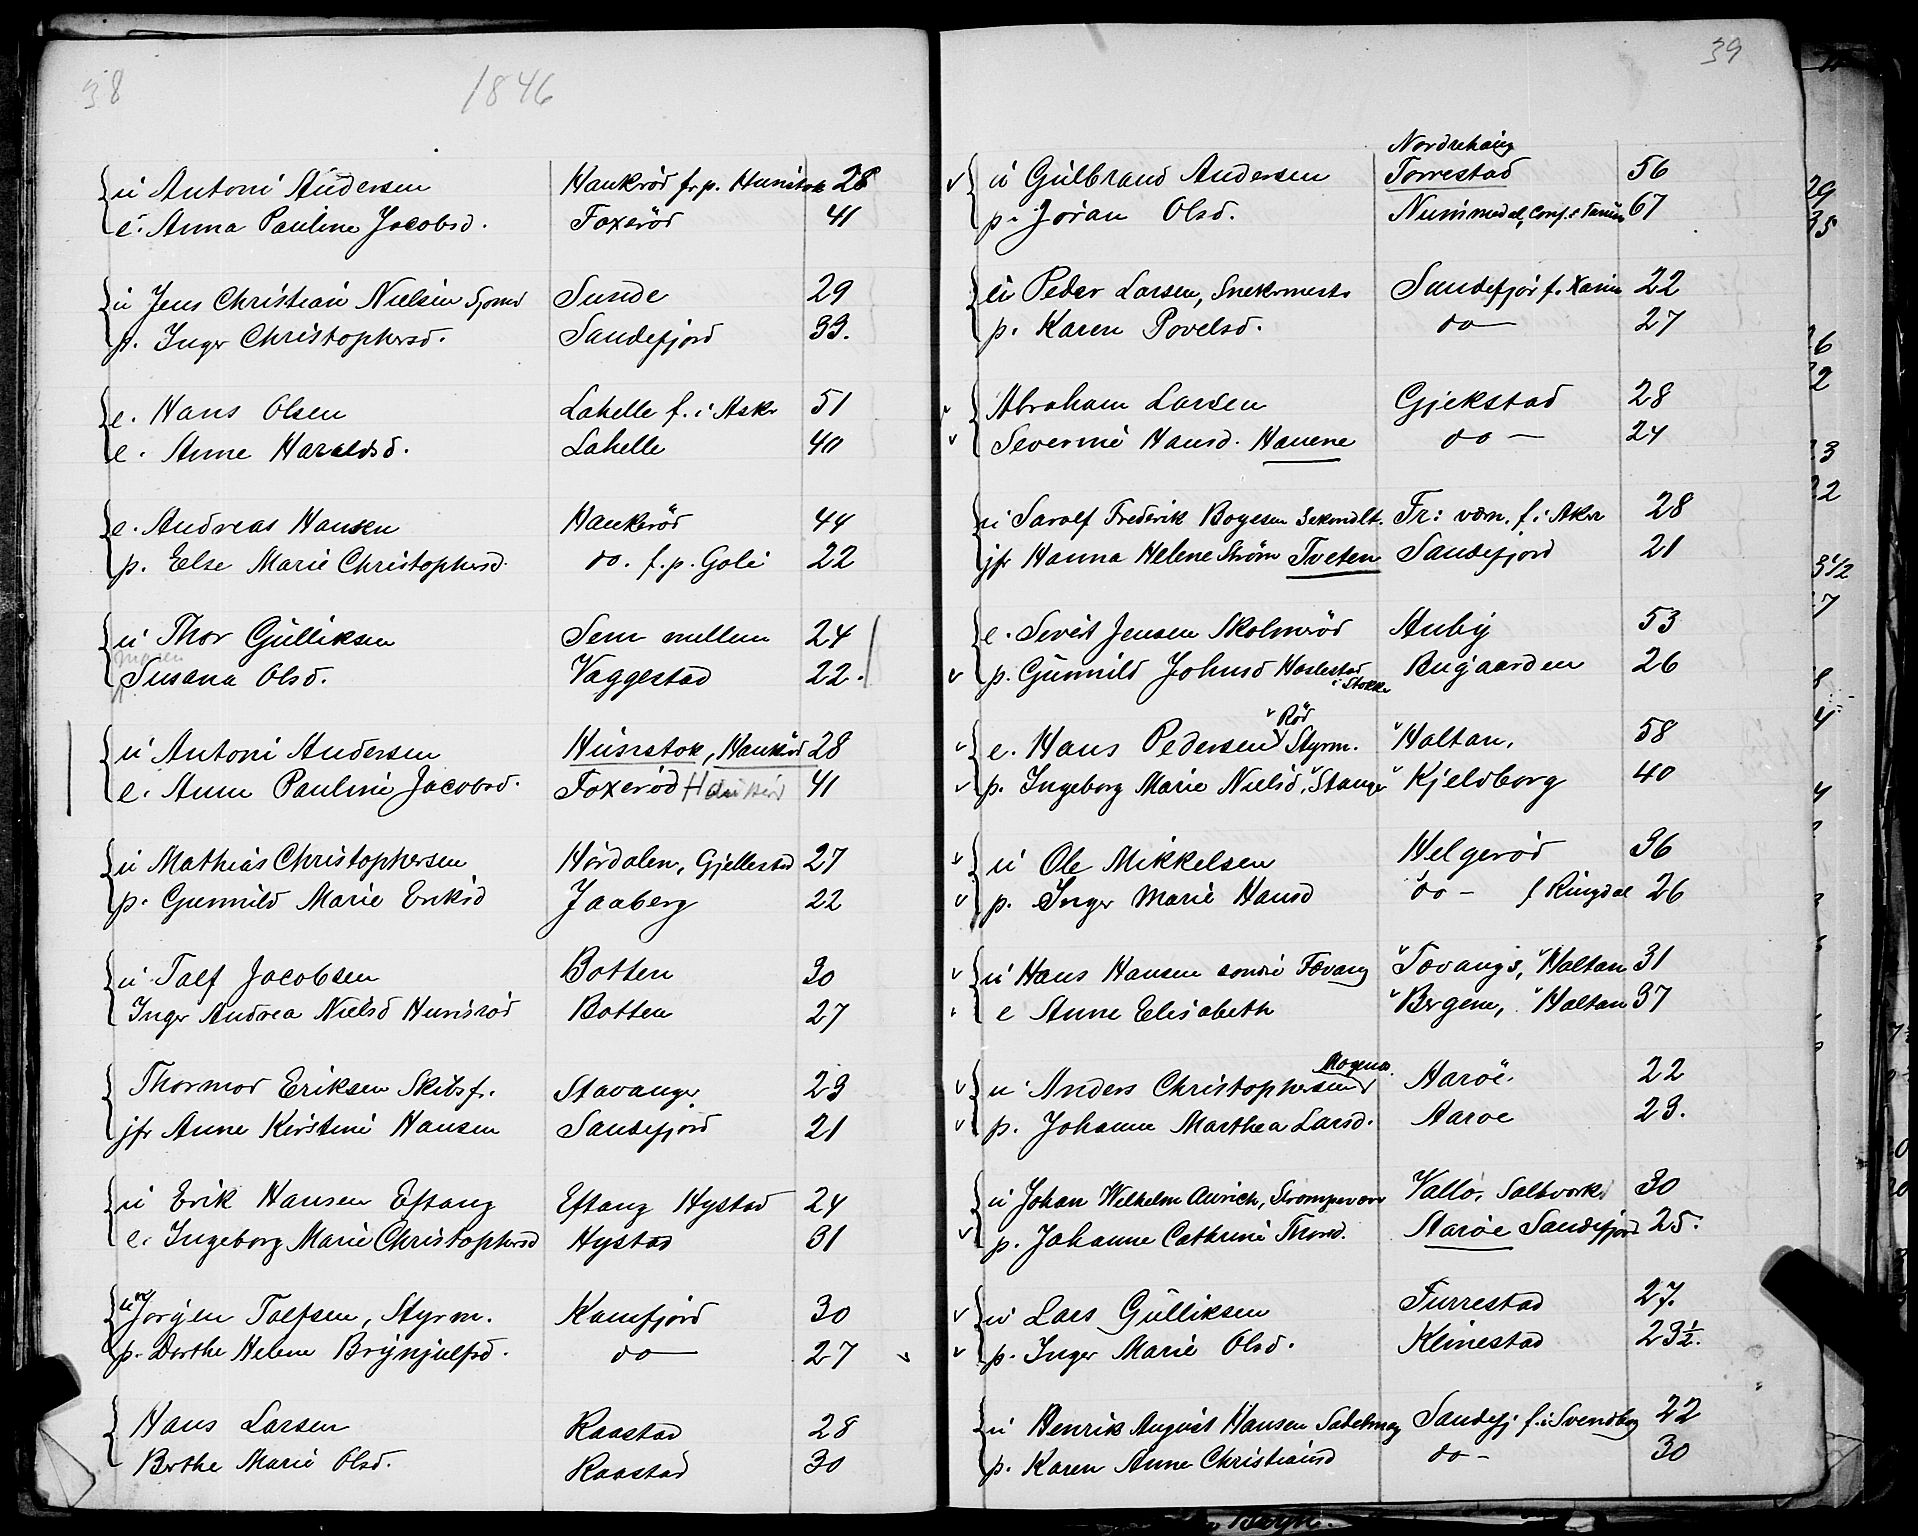 38
1846
u Antoni Andersen Haukrød fr p. Hunstok 28
e. Anna Pauline Jacobsd. Foxerød 41
u Jens Christian Nielsen Sjømd Sunde 29
p. Inger Christophersd. Sandefjord 33.
e. Hans Olsen Lahelle f. i Askr 51
e. Anne Haraldsd. Lahelle 40
e. Andreas Hansen Haukerød 44
p. Else Marie Christophersd. do. f. p. Goli 22
u Thor Gulliksen Sem mellem 24
Maren
Susana Olsd. Vaggestad 22.
u Antoni Andersen Hunstok, Haukrød 28
e. Anne Pauline Jacobsd. Foxerød Haukerød 41
u Mathias Christophersen Hørdalen, Gjellestad 27
p. Gunnild Marie Eriksd Jaaberg 22
u. Talf Jacobsen Botten 30
Inger Andrea Nielsd Hunsrød Botten 27
Thormod Eriksen Skibsf. Stavanger 23
jfr Anne Kirstine Hansen Sandefjord 21
u Erik Hansen Eftang Eftang Hystad 24
e. Ingeborg Marie Christophersd Hystad 31
u Jørgen Talfsen, Styrm. Kamfjord 30
p. Dorthe Helene Brynjulfsd. do 27
Hans Larsen Raastad 28
Berthe Marie Olsd. Raastad 30
39
Nordrehaug
u Gulbrand Andersen Torrestad 56
p. Jøran Olsd. Nummedal, Conf. i Tanum 67
u Peder Larsen, Snekrmestr Sandefjor f. 22
p. Karen Povelsd. do 27
Abraham Larsen Gjekstad 28
Severine Hansd. Hauene do 24
u Sarolf Frederik Boyesen Sekondlt. Fr: værn. f. i Aker 28
jfr Hanna Helene Strøm Tveten Sandefjord 21
e. Sivert Jensen Skolmrød Auby 53
p. Gunnild Johnsd Haslestad i Stokke Bugaarden 26
Rød
e. Hans Pedersen Styrm. Haltan, 58
p. Ingeborg Marie Nielsd, Stange Kjeldborg 40
u Ole Mikkelsen Helgerød 36
p. Inger Marie Hansd do f Ringdal 26
u Hans Hansen søndre Fævang Tovangs, Haltan 31
e Anne Elisabeth Bergene, Haltan 37
Mogens.
u Anders Christophersen Aarøe. 22
p. Johanne Marthea Larsd. Aaroe 23.
u Johan Wilhelm Aurich, Strømpevæv Vallø, Saltværk 30
p. Johanne Cathrine Thorsd. Aarøe Sandefjord 25.
u Lars Gulliksen Furrestad 27.
p. Inger Marie Olsd. Klinestad 23½.
u Henrik August Hansen Sadelmag Sandefj f. i Svendborg 22
p. Karen Anne Christiansd do 30